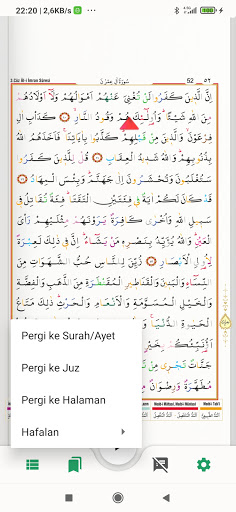 22:20 | 2,6KB/s
3.Cüz Âl-i İmrân Sûresi سُورَةُ اٰلِ عِمْرٰنَ 52 ٥٢
اِنَّ الَّذ۪ينَ كَفَرُوا لَنْ تُغْنِيَ عَنْهُمْ اَمْوَالُهُمْ وَلَٓا اَوْلَادُهُمْ
مِنَ اللّٰهِ شَيْـًٔا وَاُو۬لٰٓئِكَ هُمْ وَقُودُ النَّارِ كَدَاْبِ اٰلِ
فِرْعَوْنَ وَالَّذ۪ينَ مِنْ قَبْلِهِمْ كَذَّبُوا بِاٰيَاتِنَا فَاَخَذَهُمُ اللّٰهُ
بِذُنُوبِهِمْ وَاللّٰهُ شَد۪يدُ الْعِقَابِ قُلْ لِلَّذ۪ينَ كَفَرُوا
سَتُغْلَبُونَ وَتُحْشَرُونَ اِلٰى جَهَنَّمَ وَبِئْسَ الْمِهَادُ
قَدْ كَانَ لَكُمْ اٰيَةٌ ف۪ي فِئَتَيْنِ الْتَقَتَا فِئَةٌ تُقَاتِلُ ف۪ي
سَب۪يلِ اللّٰهِ وَاُخْرٰى كَافِرَةٌ يَرَوْنَهُمْ مِثْلَيْهِمْ رَأْيَ
الْعَيْنِ وَاللّٰهُ يُؤَيِّدُ بِنَصْرِه۪ مَنْ يَشَٓاءُ اِنَّ ف۪ي ذٰلِكَ لَعِبْرَةً
لِاُو۬لِي الْاَبْصَارِ زُيِّنَ لِلنَّاسِ حُبُّ الشَّهَوَاتِ مِنَ
النِّسَٓاءِ وَالْبَن۪ينَ وَالْقَنَاط۪يرِ الْمُقَنْطَرَةِ مِنَ الذَّهَبِ وَالْفِضَّةِ
وَالْخَيْلِ الْمُسَوَّمَةِ وَالْاَنْعَامِ وَالْحَرْثِ ذٰلِكَ مَتَاعُ
الْحَيٰوةِ الدُّنْيَا
اَؤُ۬نَبِّئُكُمْ بِخَيْرٍ
جَنَّاتٌ تَجْر۪ي مِنْ
مُطَهَّرَةٌ وَرِضْوَانٌ
Pergi ke Surah/Ayet
Pergi ke Juz
Pergi ke Halaman
Hafalan